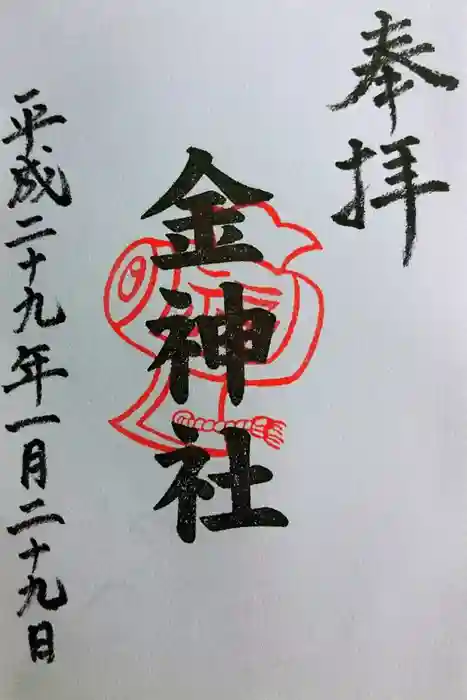 奉拝
金神社
平成二十九年一月二十九日